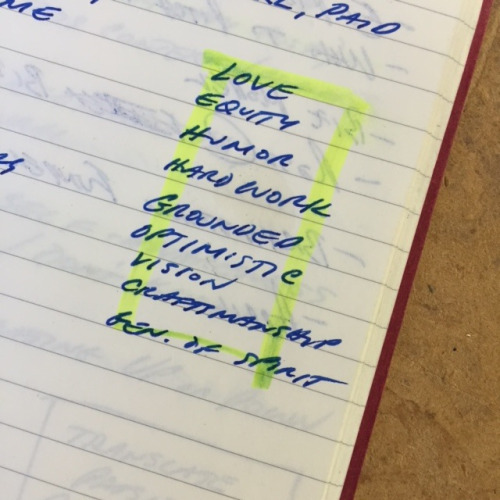 PAID
ME
LOVE
EQUITY
HUMOR
HARD WORK
GROUNDED
OPTIMISTIC
VISION
CRAFTSMANSHIP
GEN. OF SPIRIT